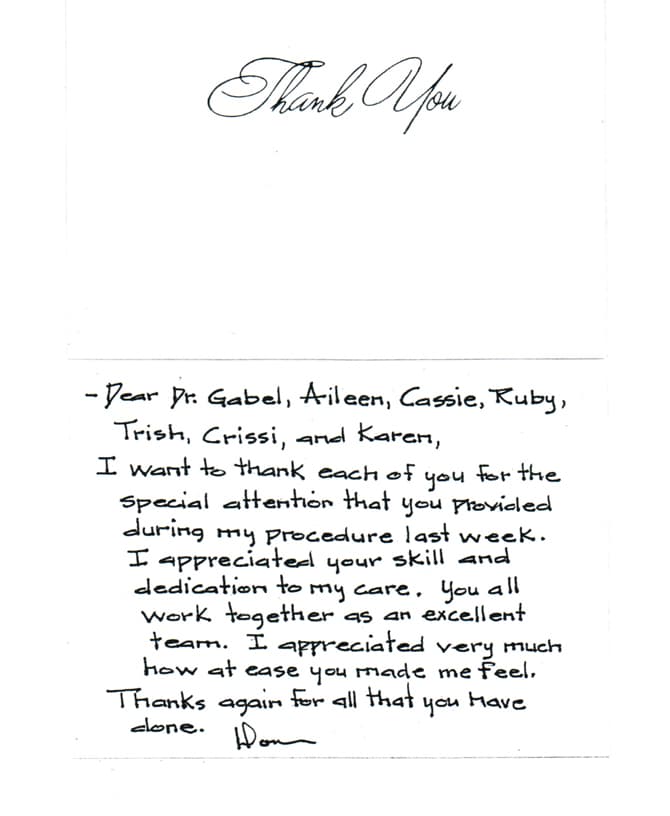 Thank You
- Dear Dr. Gabel, Aileen, Cassie, Ruby,
Trish, Crissi, and Karen,
I want to thank each of you for the
special attention that you provided
during my procedure last week.
I appreciated your skill and
dedication to my care. You all
work together as an excellent
team. I appreciated very much
how at ease you made me feel.
Thanks again for all that you have
done.